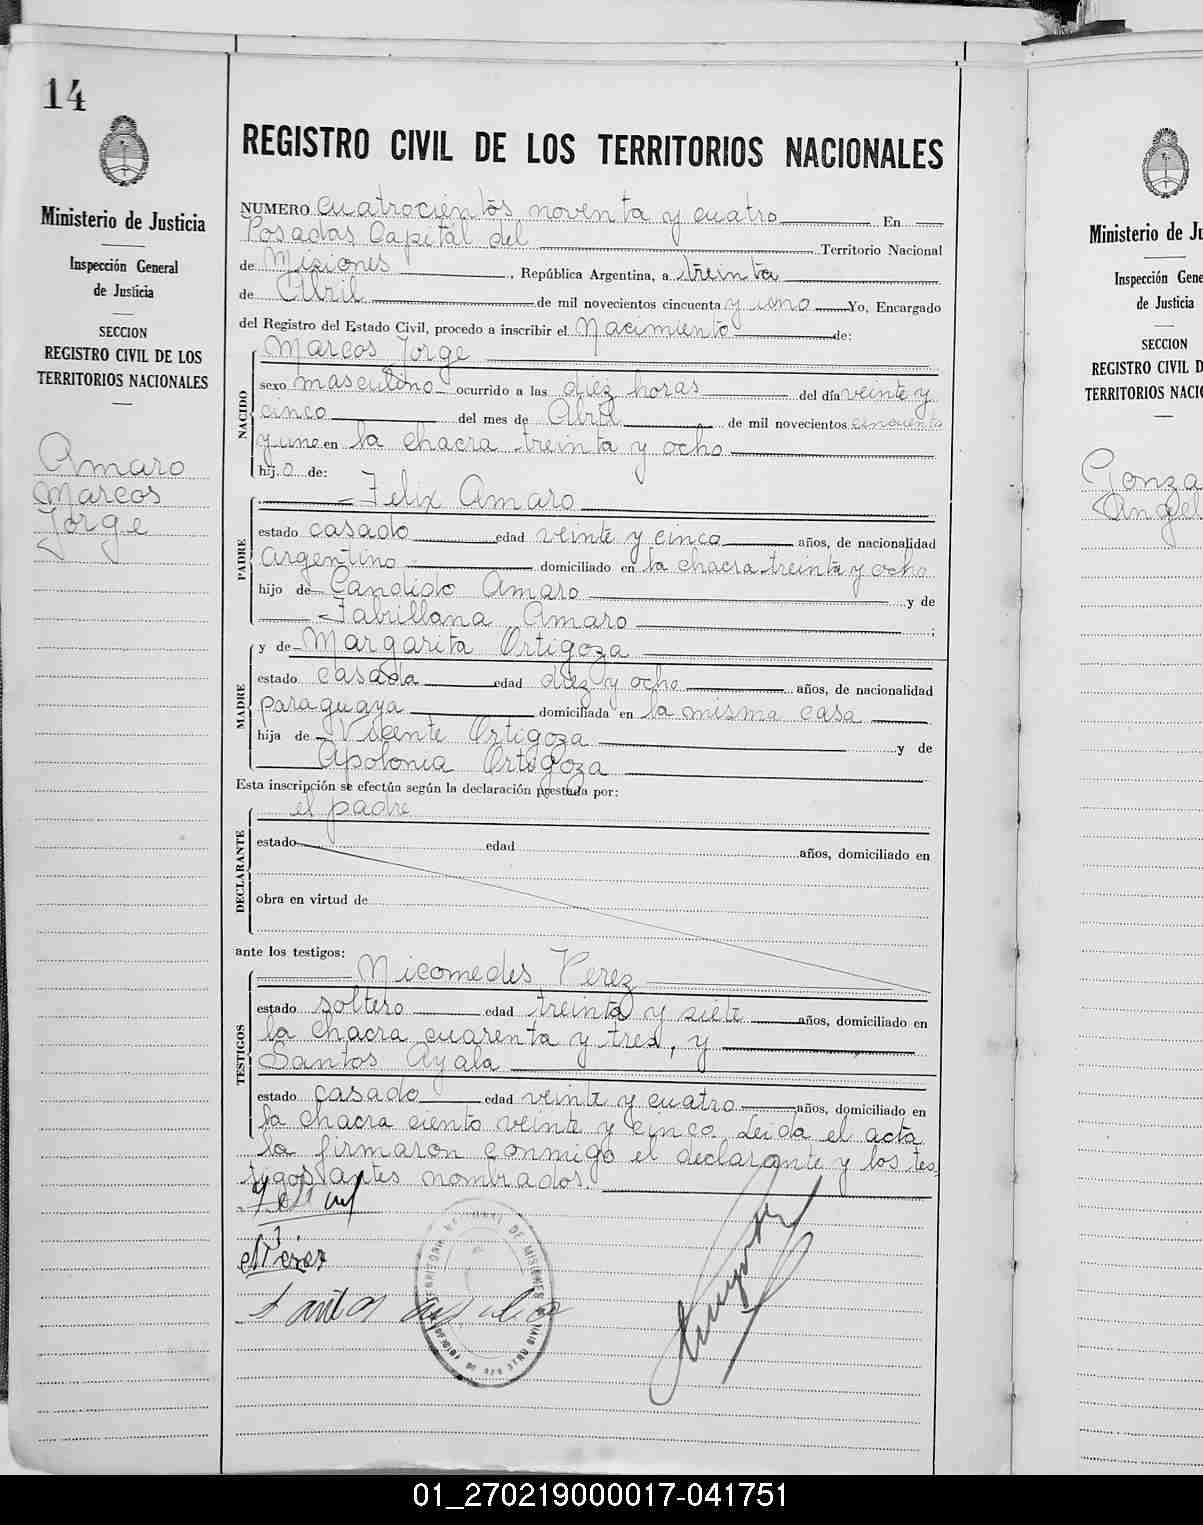 14
Ministerio de Justicia
Inspección General
de Justicia
SECCION
REGISTRO CIVIL DE LOS
TERRITORIOS NACIONALES
Amaro
Marcos
Jorge
REGISTRO CIVIL DE LOS TERRITORIOS NACIONALES
NUMERO cuatrocientos noventa y cuatro En
Posadas Capital del Territorio Nacional
de Misiones, República Argentina, a treinta
de Abril de mil novecientos cincuenta y uno Yo, Encargado
del Registro del Estado Civil, procedo a inscribir el Nacimiento de:
NACIDO
Marcos Jorge
sexo masculino ocurrido a las diez horas del día veinte y
cinco del mes de Abril de mil novecientos cincuenta
y uno en la chacra treinta y ocho
hij o de:
PADRE
Felix Amaro
estado casado edad veinte y cinco años, de nacionalidad
Argentino domiciliado en la chacra treinta y ocho
hijo de Candido Amaro y de
Fabrillana Amaro ;
MADRE
y de Margarita Ortigoza
estado casada edad diez y ocho años, de nacionalidad
paraguaya domiciliada en la misma casa
hija de Vicente Ortigoza y de
Apolonia Ortigoza
Esta inscripción se efectúa según la declaración prestada por:
DECLARANTE
el padre
estado edad años, domiciliado en
obra en virtud de
ante los testigos:
TESTIGOS
Nicomedes Perez
estado soltero edad treinta y siete años, domiciliado en
la chacra cuarenta y tres, y
Santos Ayala
estado casado edad veinte y cuatro años, domiciliado en
la chacra ciento veinte y cinco. Leida el acta
la firmaron conmigo el declarante y los tes
tigos antes nombrados.
N Perez
Santos
Ministerio de Ju
Inspección Gene
de Justicia
SECCION
REGISTRO CIVIL D
TERRITORIOS NACIO
Gonza
Angel
01_270219000017-041751